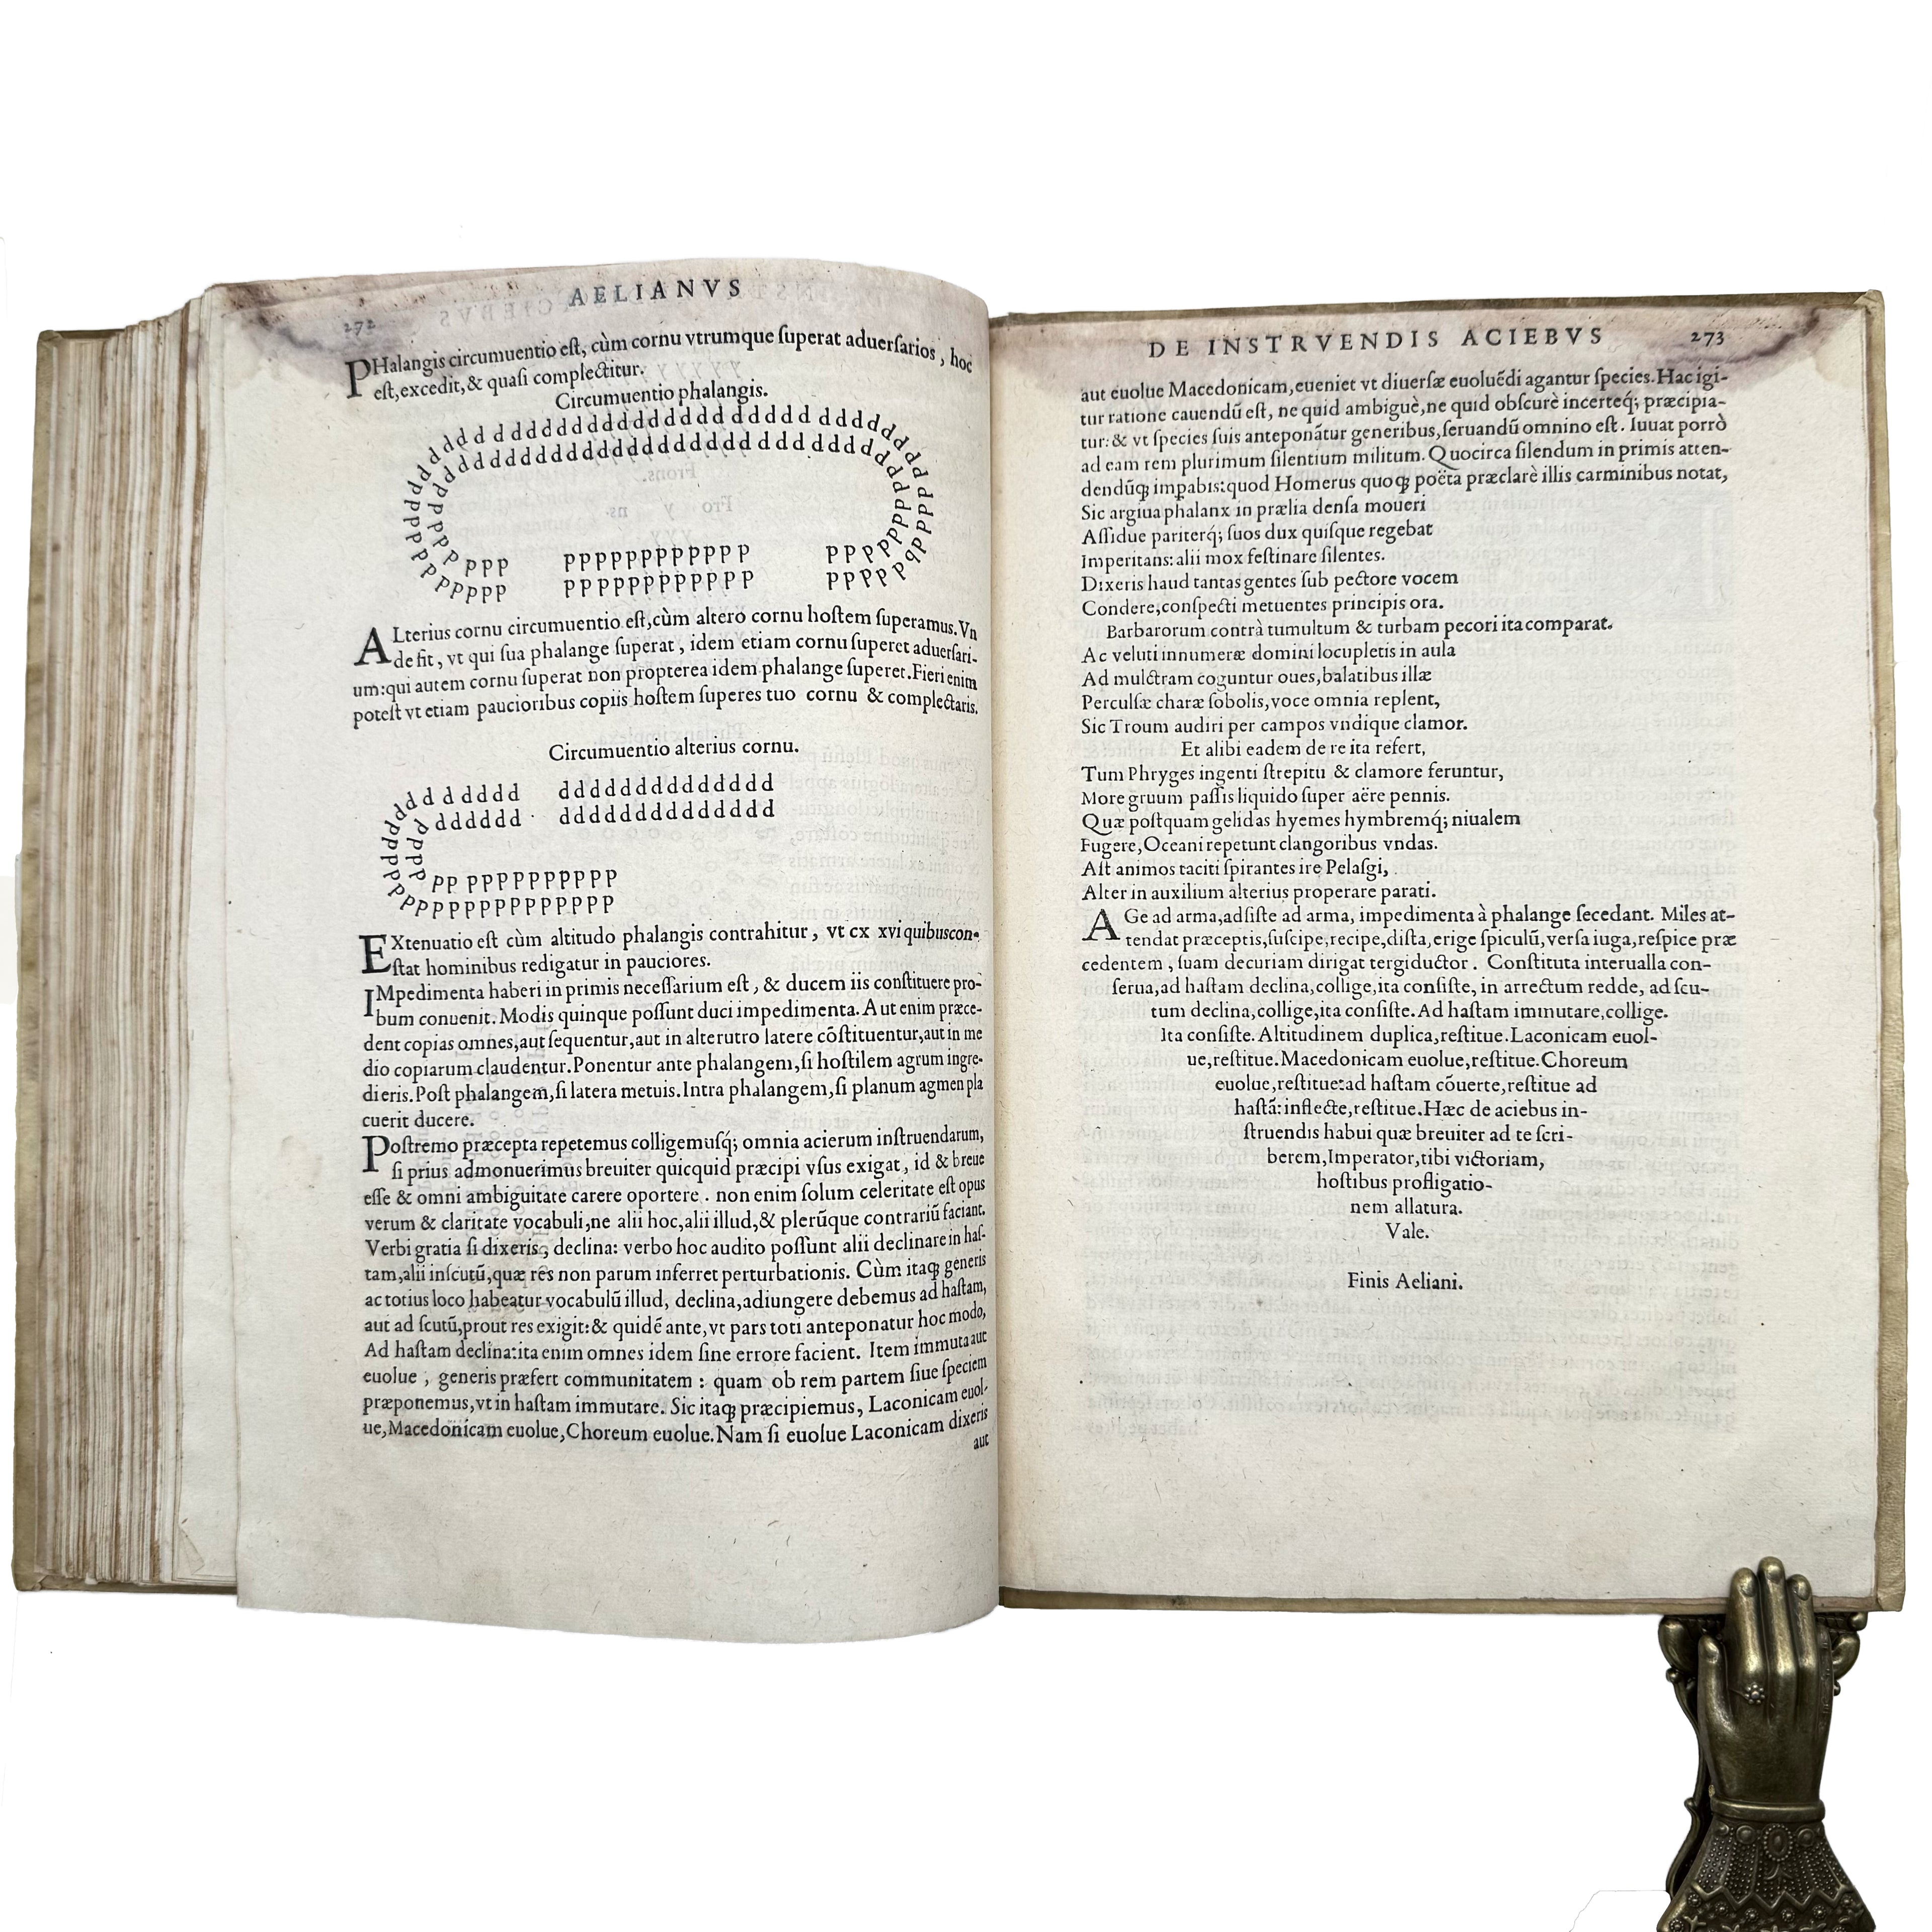 272 AELIANVS
PHalangis circumuentio est, cùm cornu vtrumque superat aduersarios, hoc
est, excedit, & quasi complectitur.
Circumuentio phalangis.
d d d d d d d d d d d d d d d d d d d d d d d d d d d d
d d d d d d d d d d d d d d d d d d d d d d d d d d d
p p p p p p p p p p p p p p p p p p p
p p p p p p p p p p p p p p p p p p p
ALterius cornu circumuentio est, cùm altero cornu hostem superamus. Vn
de fit, vt qui sua phalange superat, idem etiam cornu superet aduersari-
um: qui autem cornu superat non propterea idem phalange superet. Fieri enim
potest vt etiam paucioribus copiis hostem superes tuo cornu & complectaris.
Circumuentio alterius cornu.
d d d d d d d d d d d d d d d d d d d d d
d d d d d d d d d d d d d d d d d d d d
p p p p p p p p p p p p
p p p p p p p p p p p p p p
EXtenuatio est cùm altitudo phalangis contrahitur, vt ex xvi quibus con-
stat hominibus redigatur in pauciores.
IMpedimenta haberi in primis necessarium est, & ducem iis constituere pro-
bum conuenit. Modis quinque possunt duci impedimenta. Aut enim præce-
dent copias omnes, aut sequentur, aut in alterutro latere cõstituentur, aut in me
dio copiarum claudentur. Ponentur ante phalangem, si hostilem agrum ingre-
dieris. Post phalangem, si latera metuis. Intra phalangem, si planum agmen pla
cuerit ducere.
POstremo præcepta repetemus colligemusq́; omnia acierum instruendarum,
si prius admonuerimus breuiter quicquid præcipi vsus exigat, id & breue
esse & omni ambiguitate carere oportere. non enim solum celeritate est opus
verum & claritate vocabuli, ne alii hoc, alii illud, & plerũque contrariũ faciant.
Verbi gratia si dixeris, declina: verbo hoc audito possunt alii declinare in has-
tam, alii in scutũ, quæ res non parum inferret perturbationis. Cùm itaqꝫ generis
ac totius loco habeatur vocabulũ illud, declina, adiungere debemus ad hastam,
aut ad scutũ, prout res exigit: & quidẽ ante, vt pars toti anteponatur hoc modo,
Ad hastam declina: ita enim omnes idem sine errore facient. Item immuta aut
euolue, generis præfert communitatem: quam ob rem partem siue speciem
præponemus, vt in hastam immutare. Sic itaqꝫ præcipiemus, Laconicam euol-
ue, Macedonicam euolue, Choreum euolue. Nam si euolue Laconicam dixeris
aut
DE INSTRVENDIS ACIEBVS 273
aut euolue Macedonicam, eueniet vt diuersæ euoluẽdi agantur species. Hac igi-
tur ratione cauendũ est, ne quid ambiguè, ne quid obscurè incerteq́; præcipia-
tur: & vt species suis anteponãtur generibus, seruandũ omnino est. Iuuat porrò
ad eam rem plurimum silentium militum. Quocirca silendum in primis atten-
dendũqꝫ impabis: quod Homerus quoqꝫ poëta præclarè illis carminibus notat,
Sic argiua phalanx in prælia densa moueri
Assidue pariterq́; suos dux quisque regebat
Imperitans: alii mox festinare silentes.
Dixeris haud tantas gentes sub pectore vocem
Condere, conspecti metuentes principis ora.
Barbarorum contrà tumultum & turbam pecori ita comparat.
Ac veluti innumeræ domini locupletis in aula
Ad mulctram coguntur oues, balatibus illæ
Perculsæ charæ sobolis, voce omnia replent,
Sic Troum audiri per campos vndique clamor.
Et alibi eadem de re ita refert,
Tum Phryges ingenti strepitu & clamore feruntur,
More gruum passis liquido super aëre pennis.
Quæ postquam gelidas hyemes hymbremq́; niualem
Fugere, Oceani repetunt clangoribus vndas.
Ast animos taciti spirantes ire Pelasgi,
Alter in auxilium alterius properare parati.
AGe ad arma, adsiste ad arma, impedimenta à phalange secedant. Miles at-
tendat præceptis, suscipe, recipe, dista, erige spiculũ, versa iuga, respice præ
cedentem, suam decuriam dirigat tergiductor. Constituta interualla con-
serua, ad hastam declina, collige, ita consiste, in arrectum redde, ad scu-
tum declina, collige, ita consiste. Ad hastam immutare, collige.
Ita consiste. Altitudinem duplica, restitue. Laconicam euol-
ue, restitue. Macedonicam euolue, restitue. Choreum
euolue, restitue: ad hastam cõuerte, restitue ad
hastã: inflecte, restitue. Hæc de aciebus in-
struendis habui quæ breuiter ad te scri-
berem, Imperator, tibi victoriam,
hostibus profligatio-
nem allatura.
Vale.
Finis Aeliani.